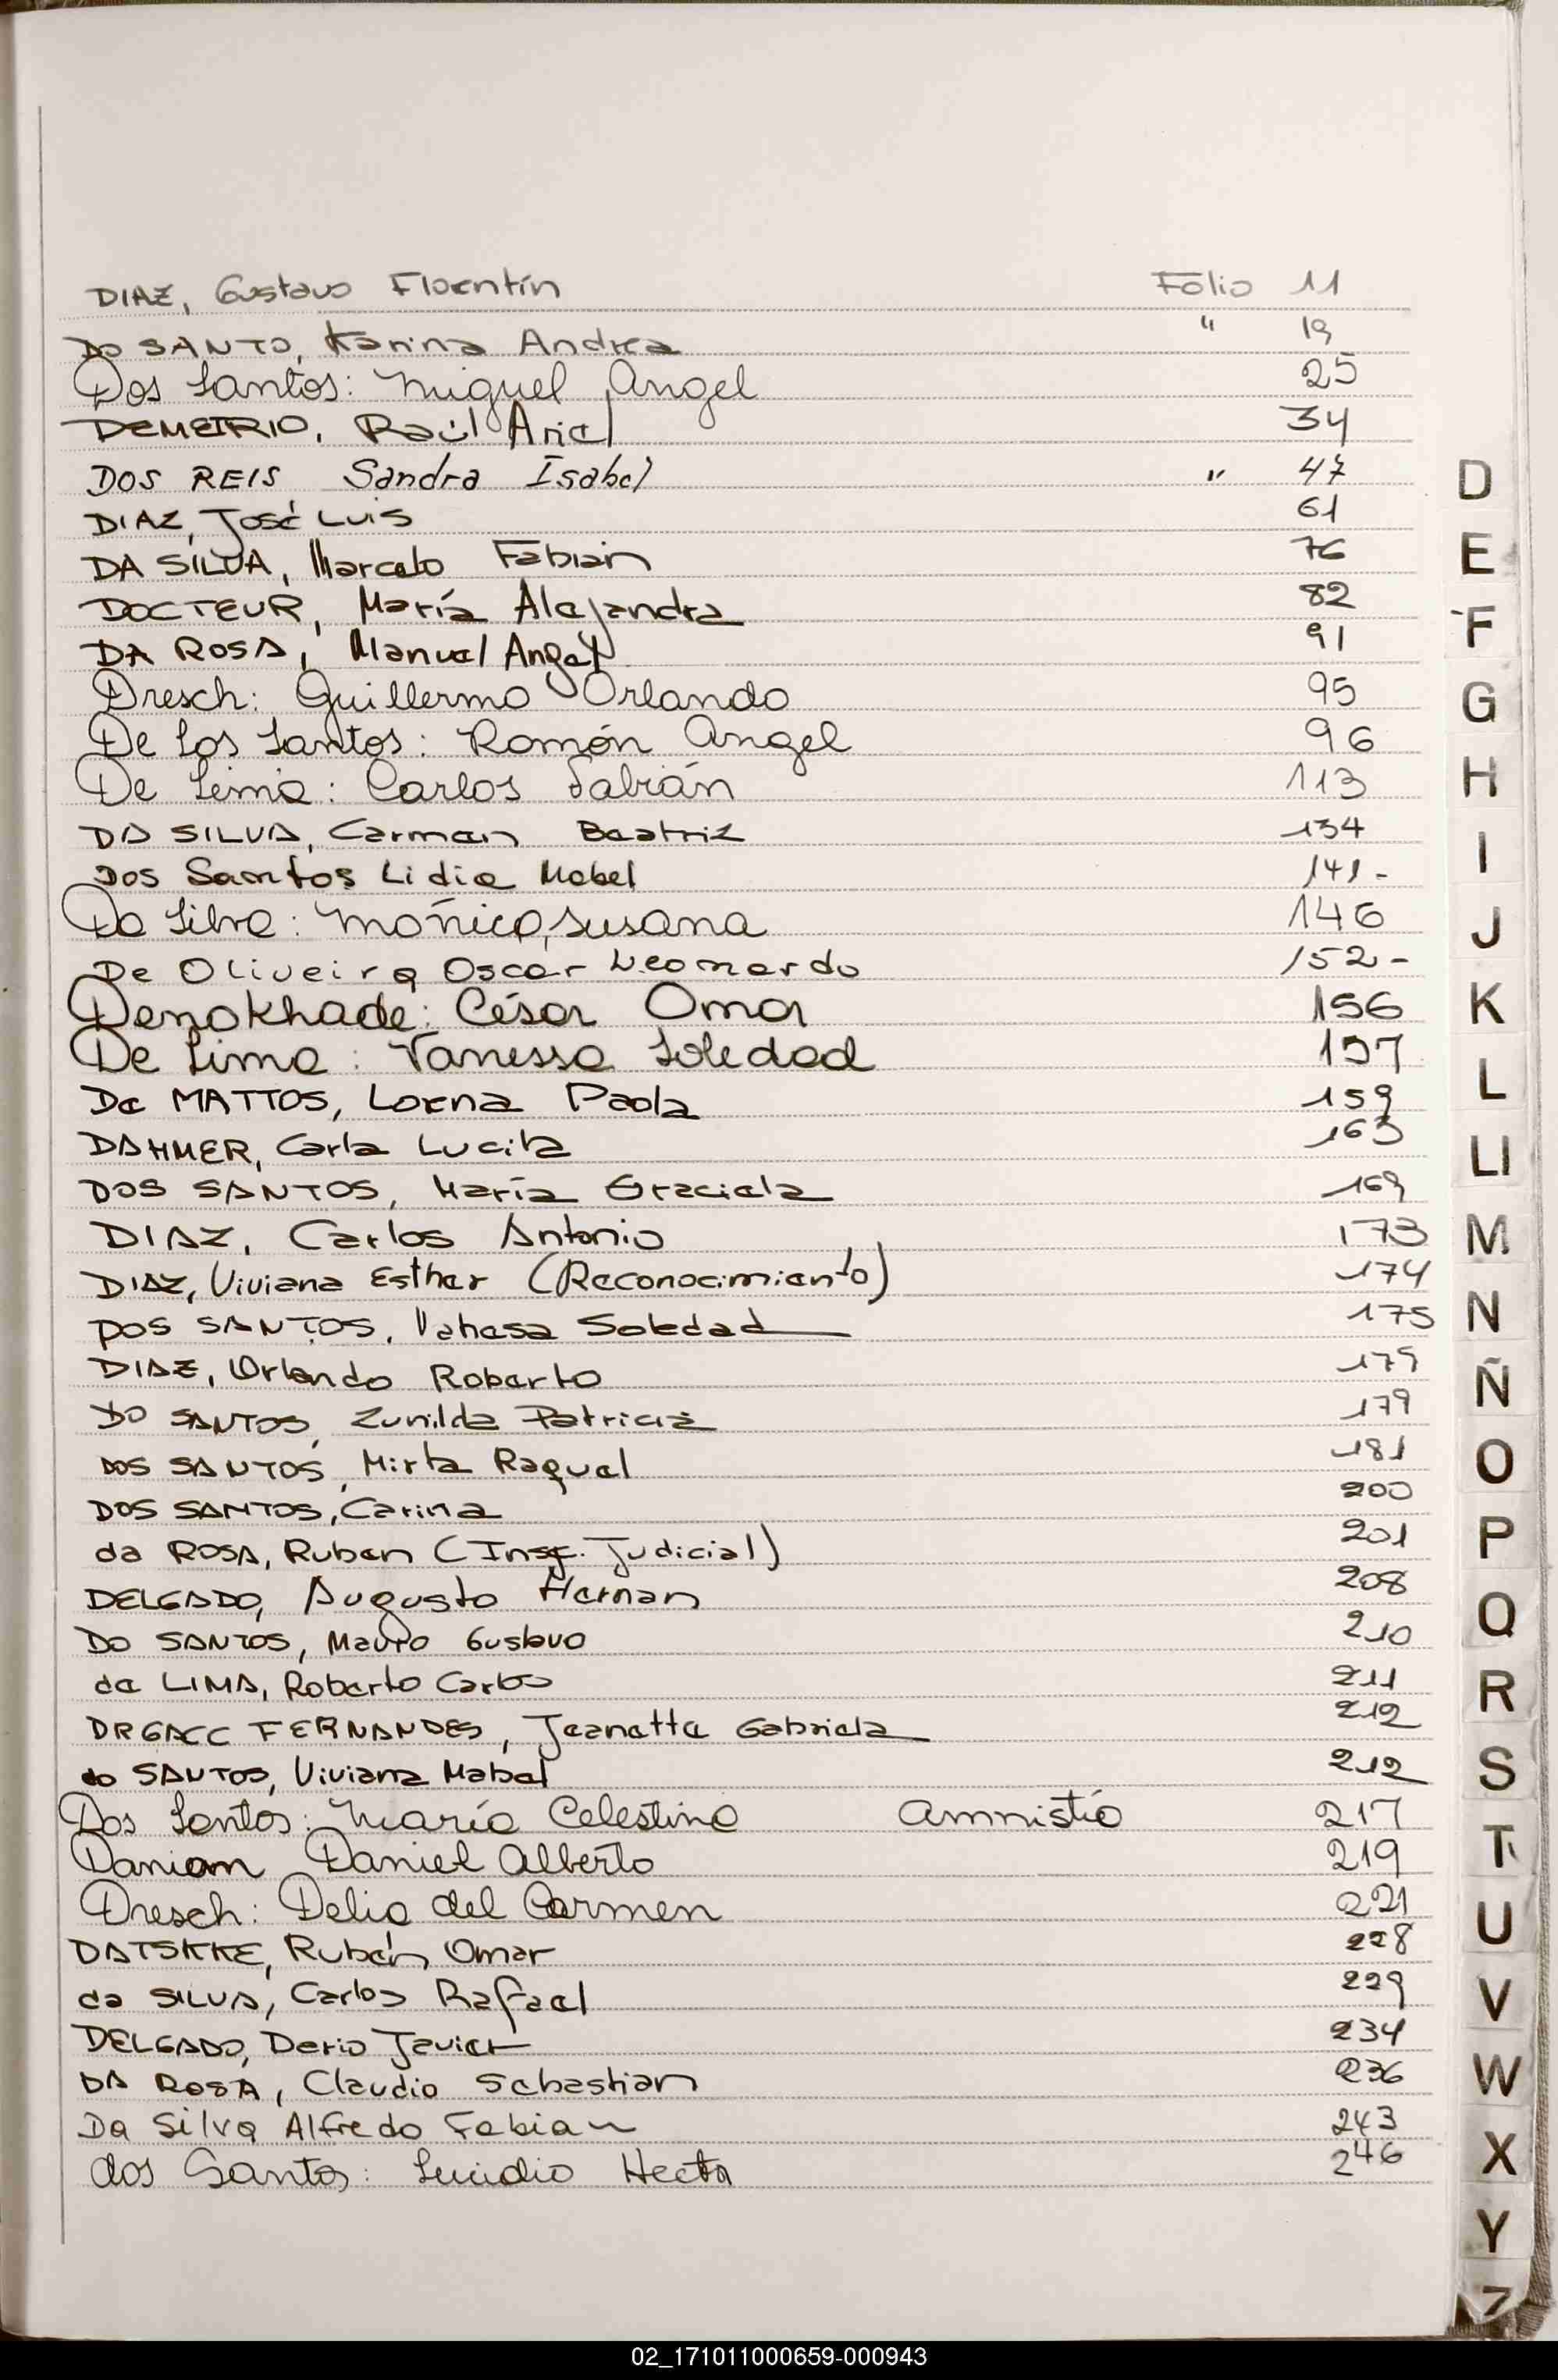 DIAZ, Gustavo Florentín Folio 11
DO SANTO, Karina Andrea " 19
Dos Santos: Miguel Angel 25
DEMETRIO, Raúl Ariel 34
DOS REIS Sandra Isabel " 47
DIAZ, José Luis 61
DA SILVA, Marcelo Fabian 76
DOCTEUR, María Alejandra 82
DA ROSA, Manuel Angel 91
Dresch: Guillermo Orlando 95
De los Santos: Román Angel 96
De Lima: Carlos Fabián 113
DA SILVA, Carmen Beatriz 134
Dos Santos Lidia Mabel 141-
Da Silva: Mónica, Susana 146
De Oliveira Oscar Leonardo 152-
Denokhade: César Omar 156
De Lima: Vanessa Soledad 157
De MATTOS, Lorena Paola 159
DAHMER, Carla Lucila 163
DOS SANTOS, María Graciela 169
DIAZ, Carlos Antonio 173
DIAZ, Viviana Esther (Reconocimiento) 174
DOS SANTOS, Vanesa Soledad 175
DIAZ, Orlando Roberto 179
DO SANTOS, Zunilda Patricia 179
DOS SANTOS, Mirta Raquel 181
DOS SANTOS, Carina 200
da ROSA, Ruben (Insc. Judicial) 201
DELGADO, Augusto Hernan 208
DO SANTOS, Mauro Gustavo 210
de LIMA, Roberto Carlos 211
DRGACC FERNANDES, Jeanette Gabriela 212
do SANTOS, Viviana Mabel 212
Dos Santos: María Celestina Amnistía 217
Danian Daniel Alberto 219
Dresch: Delia del Carmen 221
DATSKKE, Rubén Omar 228
da SILVA, Carlos Rafael 229
DELGADO, Dario Javier 234
DA ROSA, Claudio Sebastian 236
Da Silva Alfredo Fabian 243
dos Santos: Lucidio Hector 246
D
E
F
G
H
I
J
K
L
Ll
M
N
Ñ
O
P
Q
R
S
T
U
V
W
X
Y
Z
02_171011000659-000943